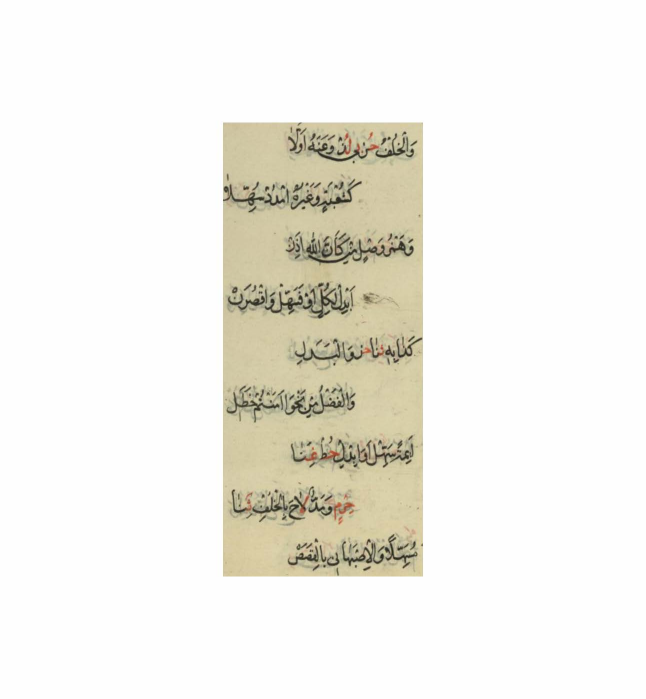 وَالْخُلْفُ حُزْ بِي لُذْ وَعَنْهُ أَوَّلَا
كَشُعْبَةٍ وَغَيْرُهُ امْدُدْ سَهِّلَا
وَهَمْزُ وَصْلٍ مِنْ كَآللهُ أَذِنْ
أَبْدِلْ لِكُلٍّ أَوْ فَسَهِّلْ وَاقْصُرَنْ
كَذَا بِهِ ثَنَا حُزْ وَالْبَدَلِ
وَالْفَصْلُ مِنْ نَحْوِ آمَنْتُمْ خَطَلْ
أَئِمَّةً سَهِّلْ أَوَ ابْدِلْ حُطْ غِنَا
حِرْمٍ وَمَدٌّ لَاحَ بِالْخُلْفِ ثَنَا
مُسَهِّلًا وَالْاِصْبَهَانِي بِالْقَصَصْ